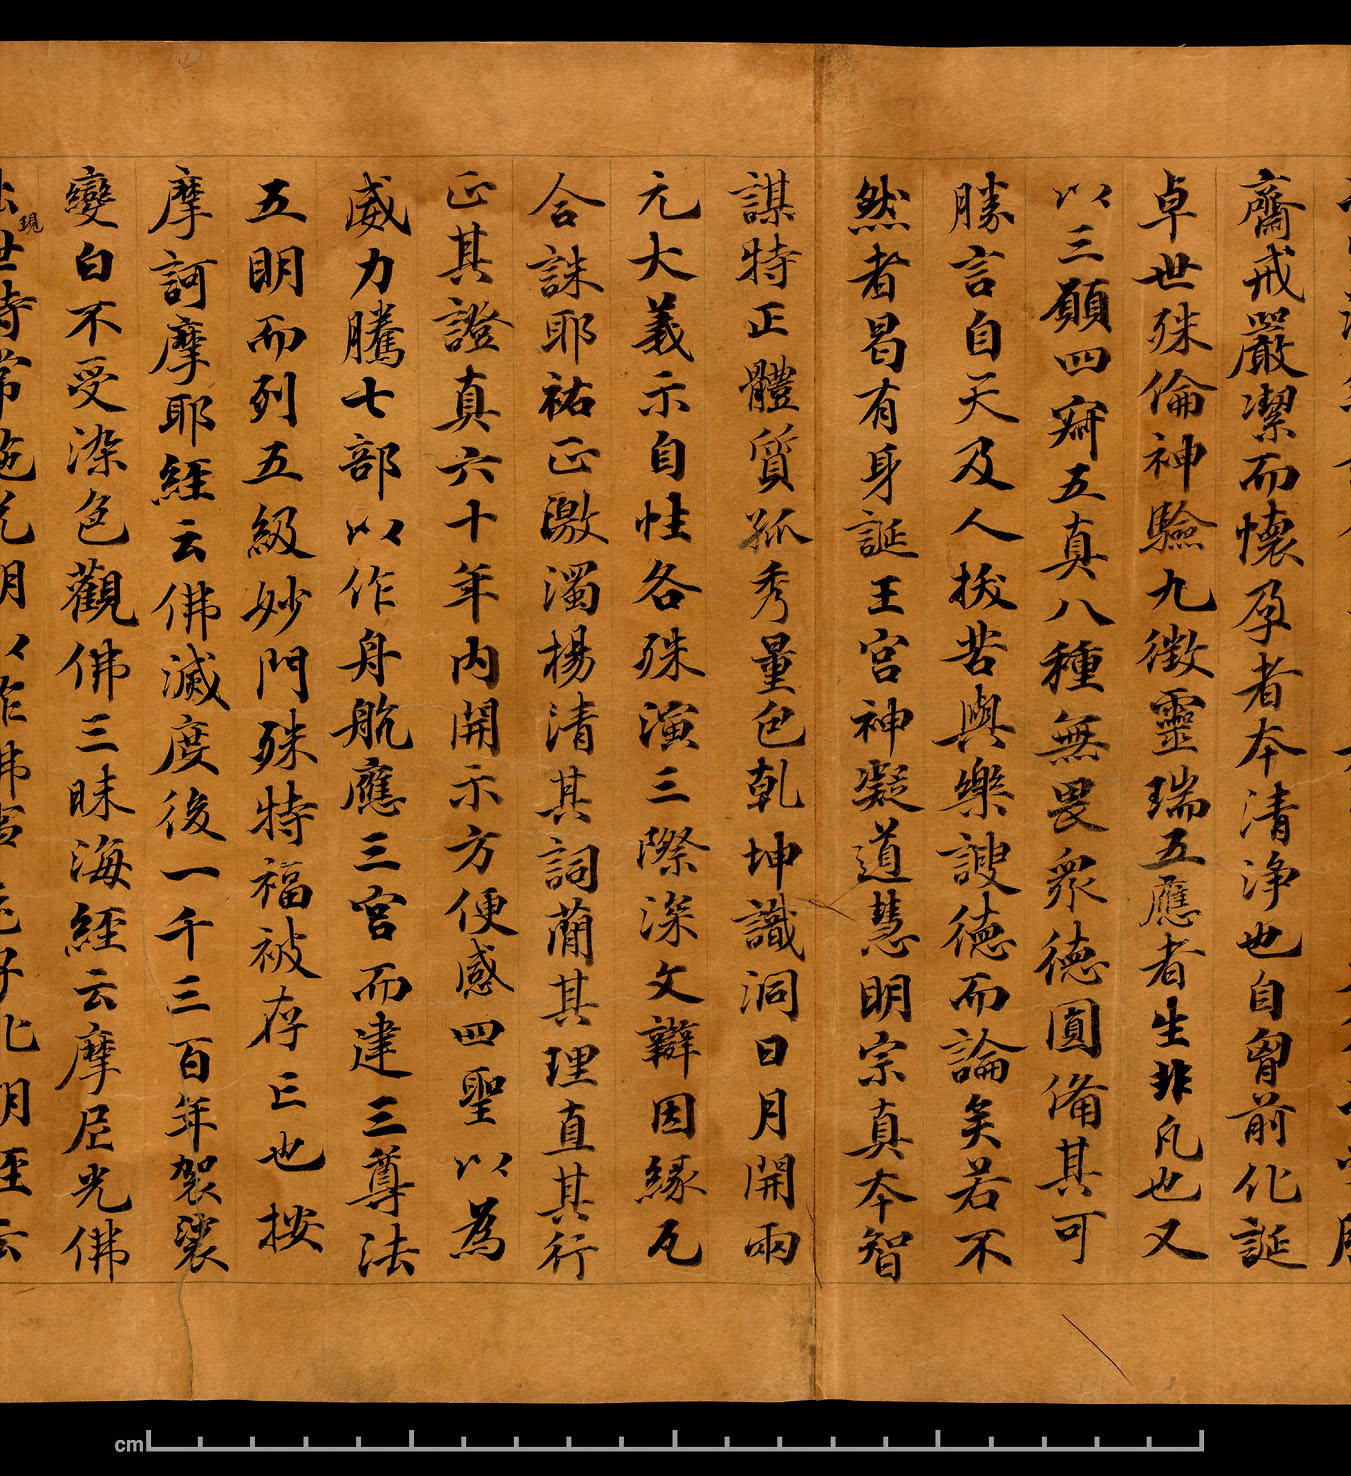 齋戒嚴潔而懷孕者本清淨也自胷前化誕
卓世殊倫神驗九徵靈瑞五應者生非凡也又
以三願四寂五真八種無畏衆德圓備其可
勝言自天及人拔苦與樂謏德而論矣若不
然者曷有身誕王宮神凝道慧明宗真本智
謀特正體質孤秀量包乾坤識洞日月開兩
元大義示自性各殊演三際深文辯因緣瓦
合誅耶祐正激濁揚清其詞蕳其理直其行
正其證真六十年內開示方便感四聖以為
威力騰七部以作舟航應三宮而建三尊法
五明而列五級妙門殊特福被存亡也按
摩訶摩耶經云佛滅度後一千三百年袈裟
變白不受染色觀佛三昧海經云摩尼光佛
出現世時常施光明以作佛